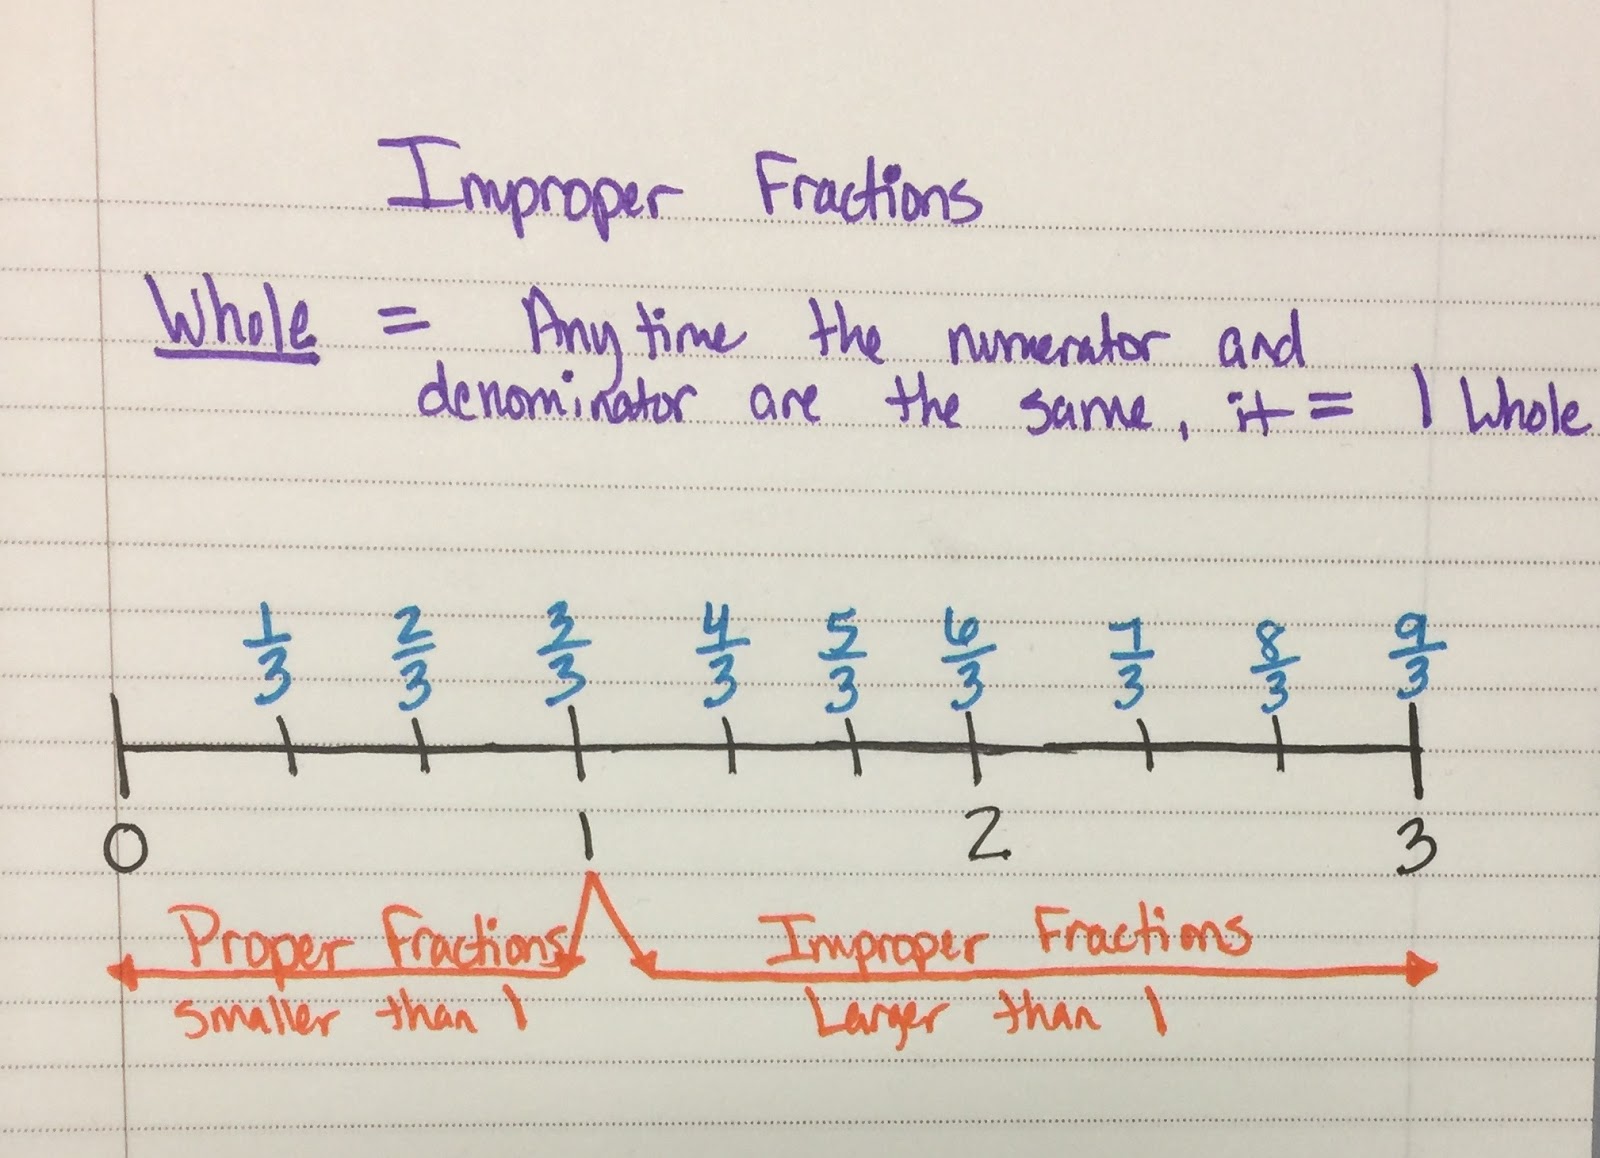 Improper Fractions
Whole = Any time the numerator and
denominator are the same, it = 1 Whole
1/3 2/3 3/3 4/3 5/3 6/3 7/3 8/3 9/3
0 1 2 3
Proper Fractions Improper Fractions
smaller than 1 Larger than 1